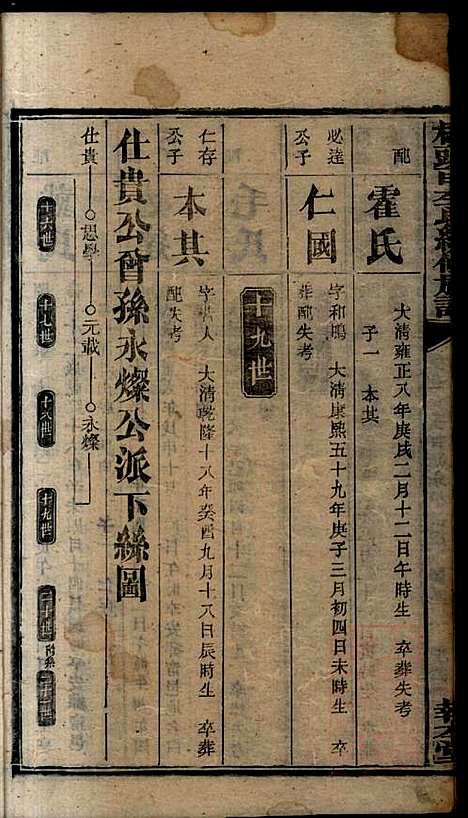 配
霍氏
大清雍正八年庚戌二月十二日午時生 卒葬失考
子一 本其
必達公子
仁國
字和鳴 大清康熙五十九年庚子三月初四日未時生 卒葬配失考
十九世
仁存公子
本其
大清乾隆十八年癸酉九月十八日辰時生 卒葬配失考
仕貴公曾孫永燦公派下絲圖
仕貴 思學 元載 永燦
十六世 十七世 十八世 十九世 二十世 附系 二十一世